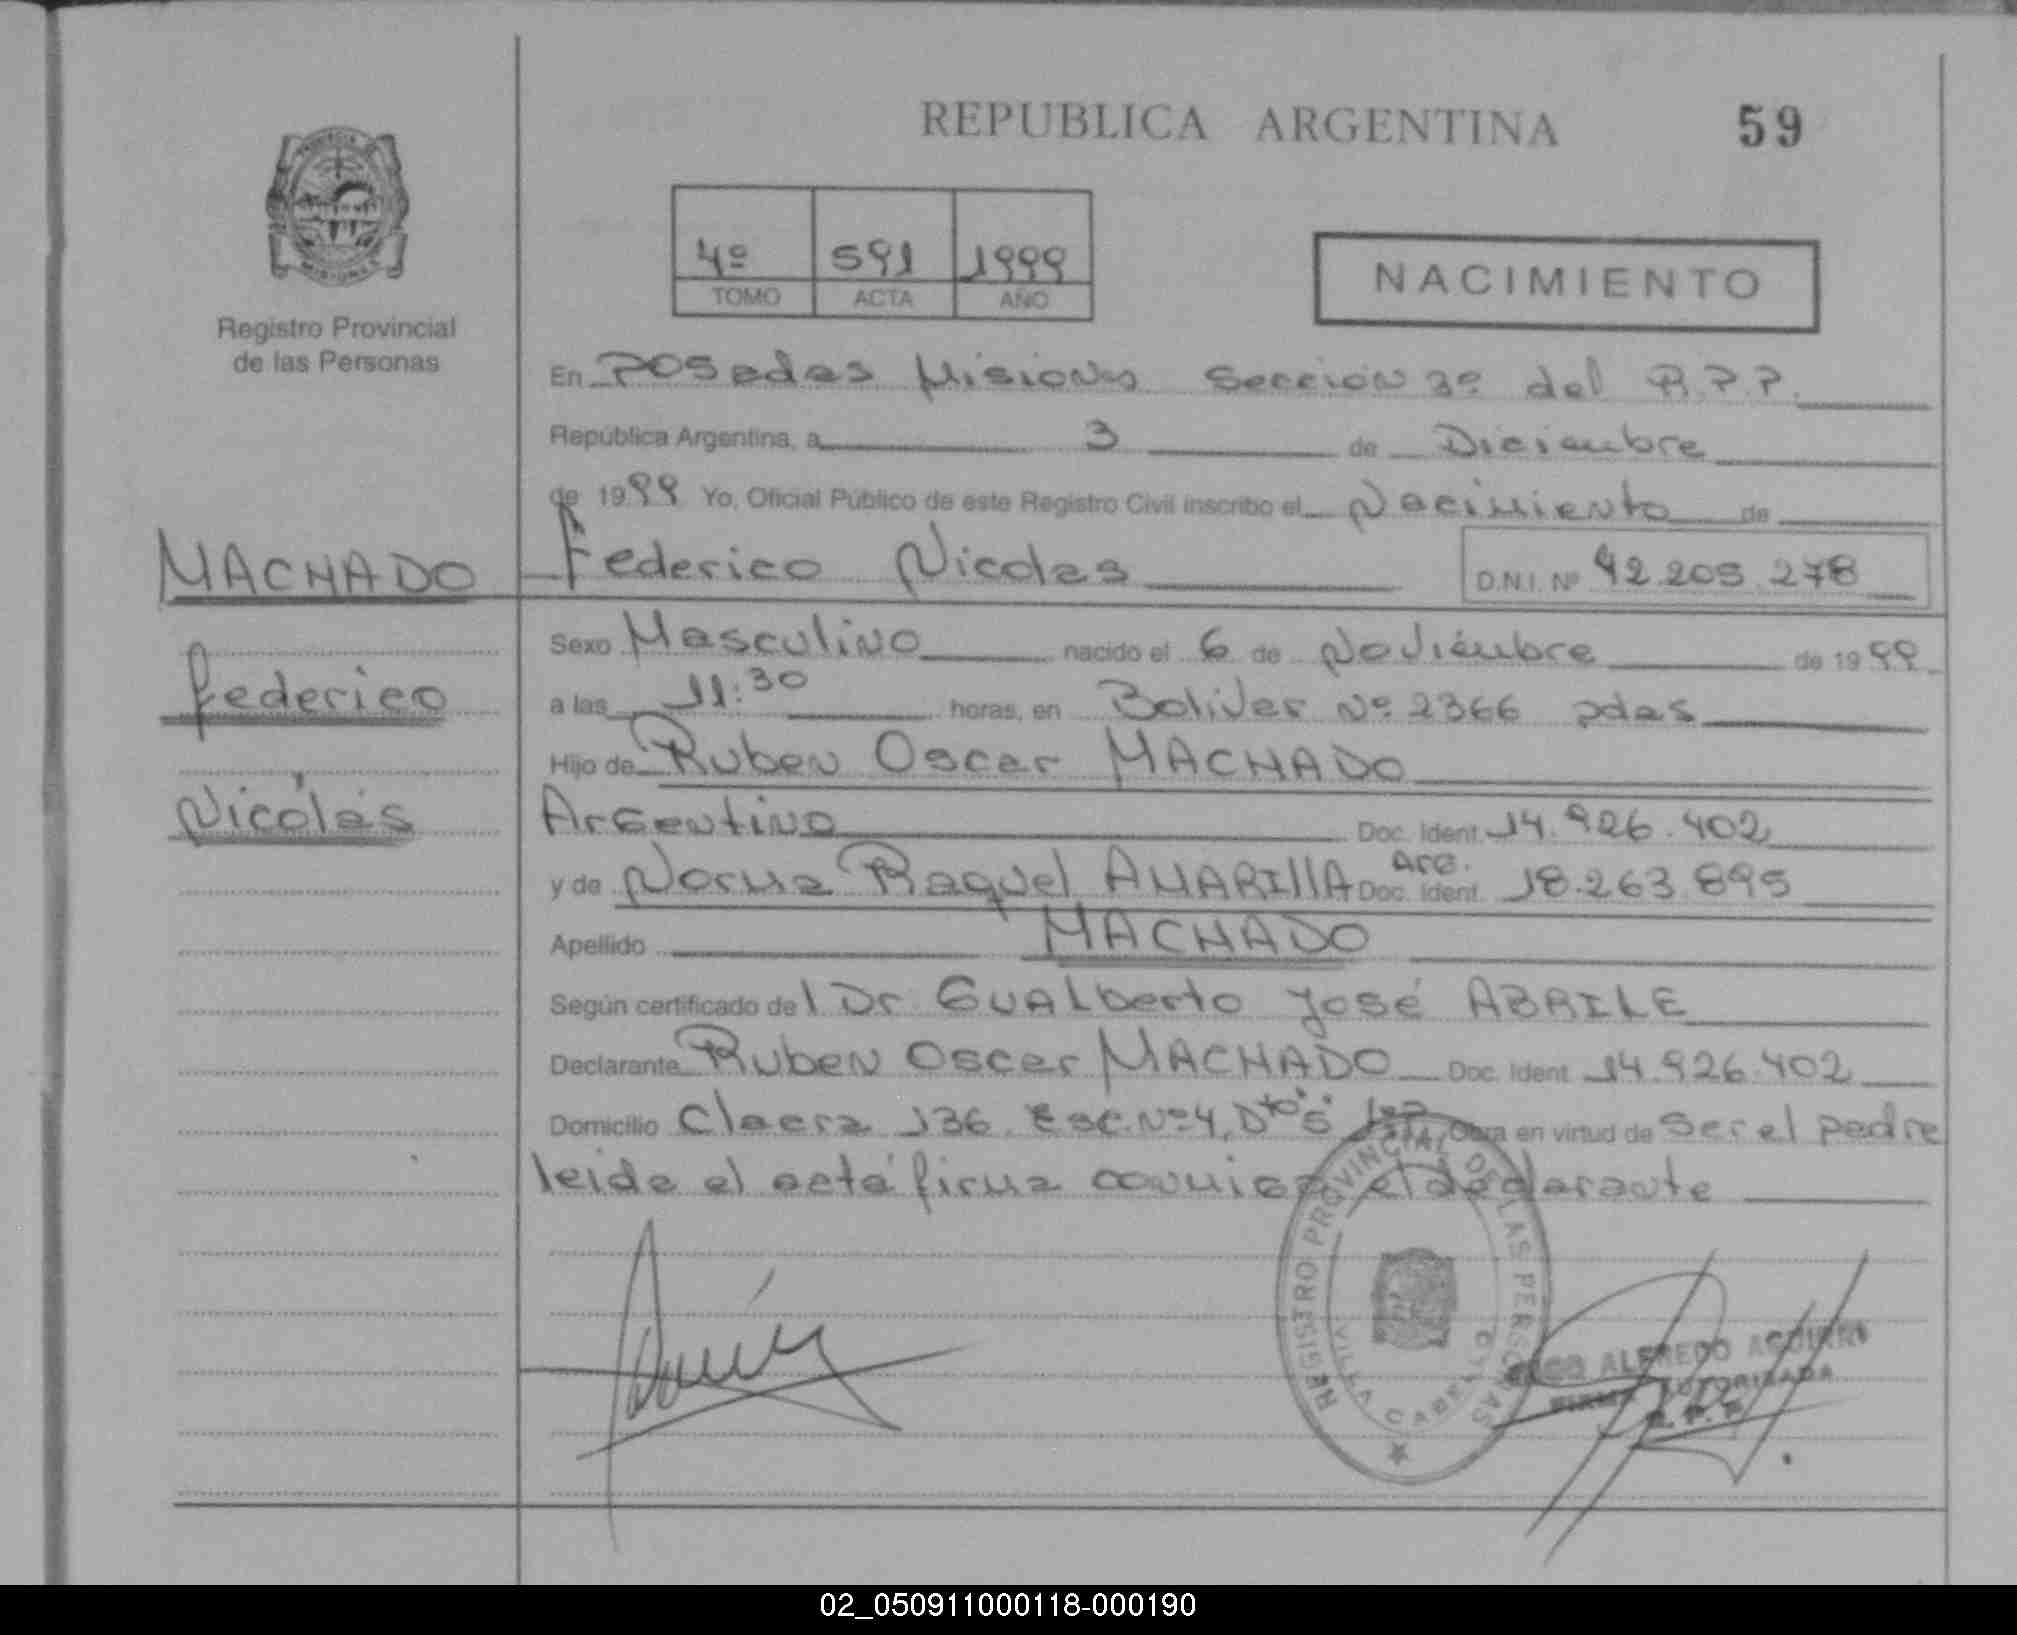 REPUBLICA ARGENTINA 59
4º 591 1999
TOMO ACTA AÑO
NACIMIENTO
Registro Provincial
de las Personas
En Posadas Misiones Sección 3º del R.P.P.
República Argentina, a 3 de Diciembre
de 1999 Yo, Oficial Público de este Registro Civil inscribo el Nacimiento de
MACHADO Federico Nicolas D.N.I. Nº 42.205.278
Federico
Nicolás
Sexo Masculino nacido el 6 de Noviembre de 1999
a las 11:30 horas, en Bolivar Nº 2366 pdas
Hijo de Ruben Oscar MACHADO
Argentino Doc. Ident. 14.926.402
y de Norma Raquel AMARILLA Arg. Doc. Ident. 18.263.895
Apellido MACHADO
Según certificado del Dr Gualberto José ABRILE
Declarante Ruben Oscar MACHADO Doc. Ident 14.926.402
Domicilio Claera 136 Esc. Nº 4, Dto 5 Obra en virtud de Ser el padre
leida el acta firma conmigo el declarante
REGISTRO PROVINCIAL DE LAS PERSONAS
VILLA CABELLO
ALFREDO
FIRMA AUTORIZADA
R. P. P.
02_050911000118-000190